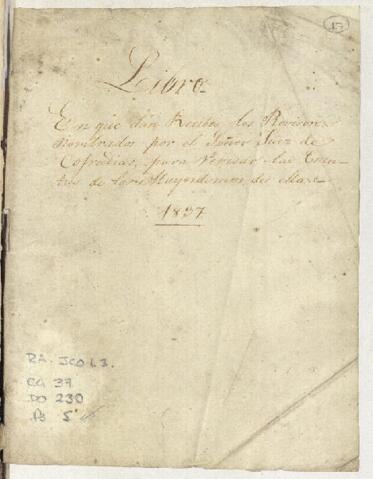 15
Libro
En que dan Recibo los Revisores
Nombrados por el Señor Juez de
Cofradias, para revisar las Cuen-
tas de los Mayordomos de
1837
RA. JCO1.3.
CA 37
DO 230
Ps 5